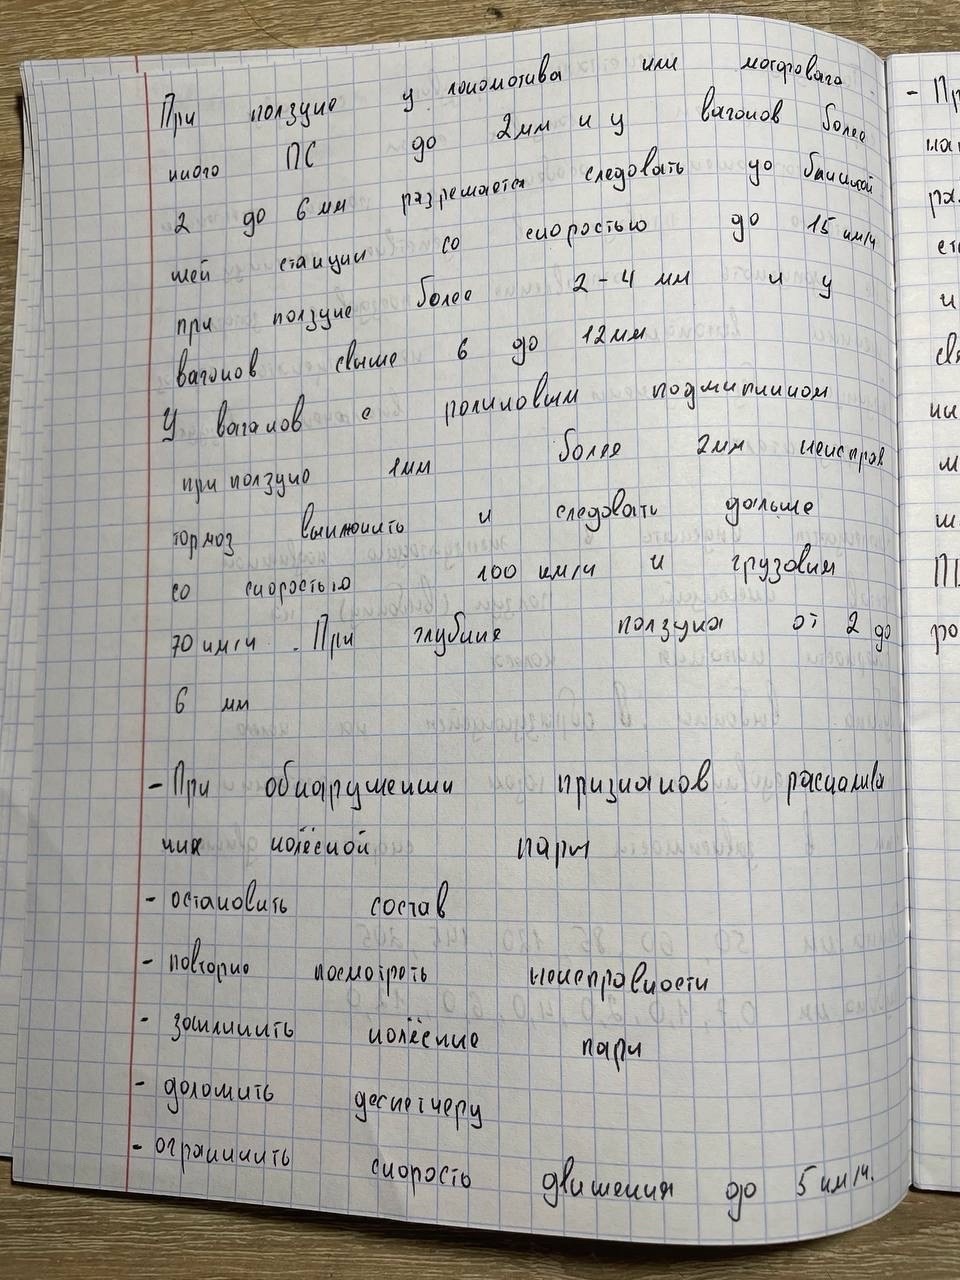 При ползуне у локомотива или моторваго
нного ПС до 2мм и у вагонов более
2 до 6мм разрешается следовать до ближай
шей станции со скоростью до 15км/ч
при ползуне более 2-4 мм и у
вагонов свыше 6 до 12мм
У вагонов с роликовым подшипником
при ползуно 1мм более 2мм неисправ
тормоз выключить и следовать дальше
со скоростью 100 км/ч и грузовым
70 км/ч. При глубине ползуна от 2 до
6 мм
- При обнаружении признаков расцолива
ния колёсной пары
- остановить состав
- повторно посмотреть неисправности
- зошлинить колёсные пары
- доложить деспетчеру
- ограничить скорость движения до 5 км/ч.
- Пр
на
ра
ст
и
свя
ны
м
ш
ро